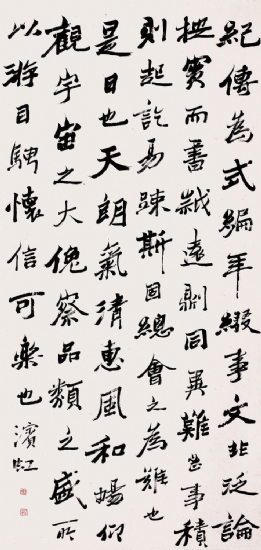 紀傳為式編年綴事文非泛論
按實而書歲遠則同異難密事積
則起訖易踈斯固總會之為難也
是日也天朗氣清惠風和暢仰
觀宇宙之大俛察品類之盛所
以游目騁懷信可樂也
濱虹